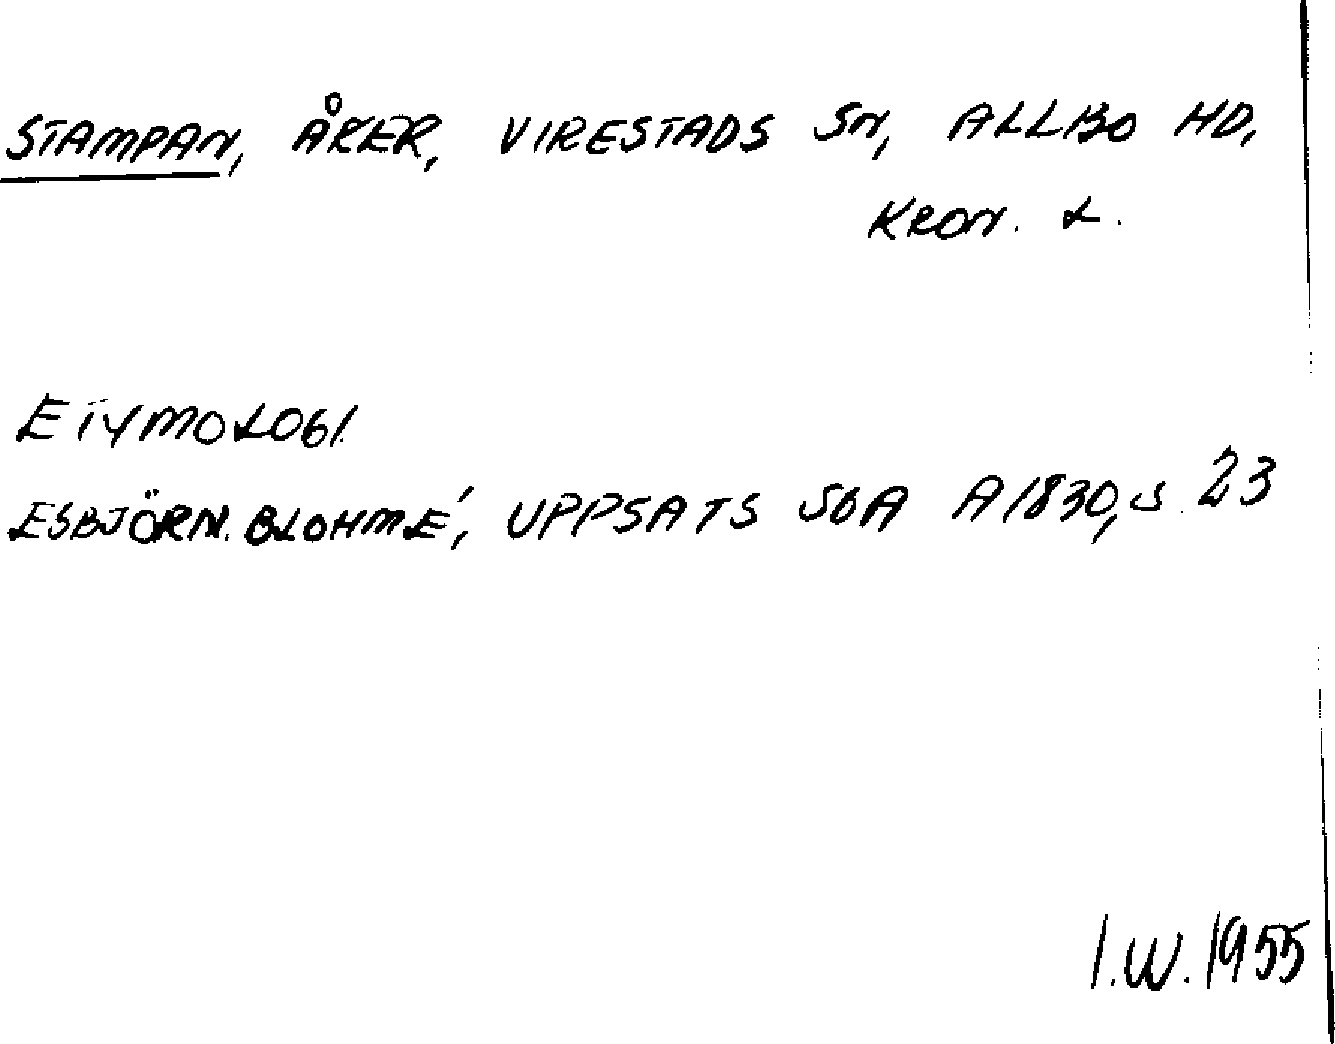 STAMPAN, ÅKER, VIRESTADS SN, ALLBO HD,
KRON. L.
ETYMOLOGI.
ESBJÖRN BLOHMÉ, UPPSATS SOA A 1830, S. 23
I.W. 1955